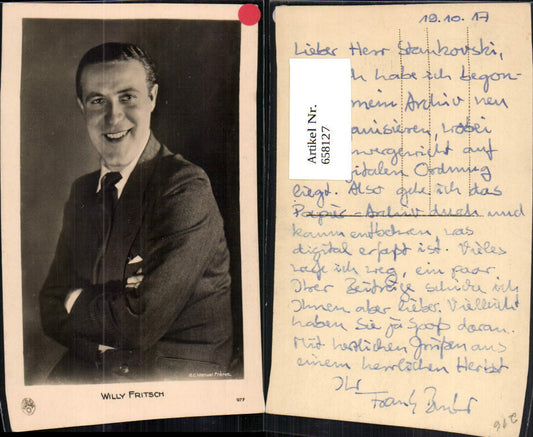 R.C. Manuel Frères.
WILLY FRITSCH
977
19.10.17
Lieber Herr Stankovski,
habe ich begon-
mein Archiv neu
anisieren, wobei
auf
gitalen Ordnung
liegt. Also gehe ich das
Papier-Archiv durch und
kann entbehren, was
digital erfaßt ist. Vieles
werfe ich weg, ein paar
Ihrer Beiträge schicke ich
Ihnen aber lieber. Vielleicht
haben Sie ja Spaß daran.
Mit herzlichen Grüßen aus
einem herrlichen Herbst
Ihr
Frank
Artikel Nr.
658127